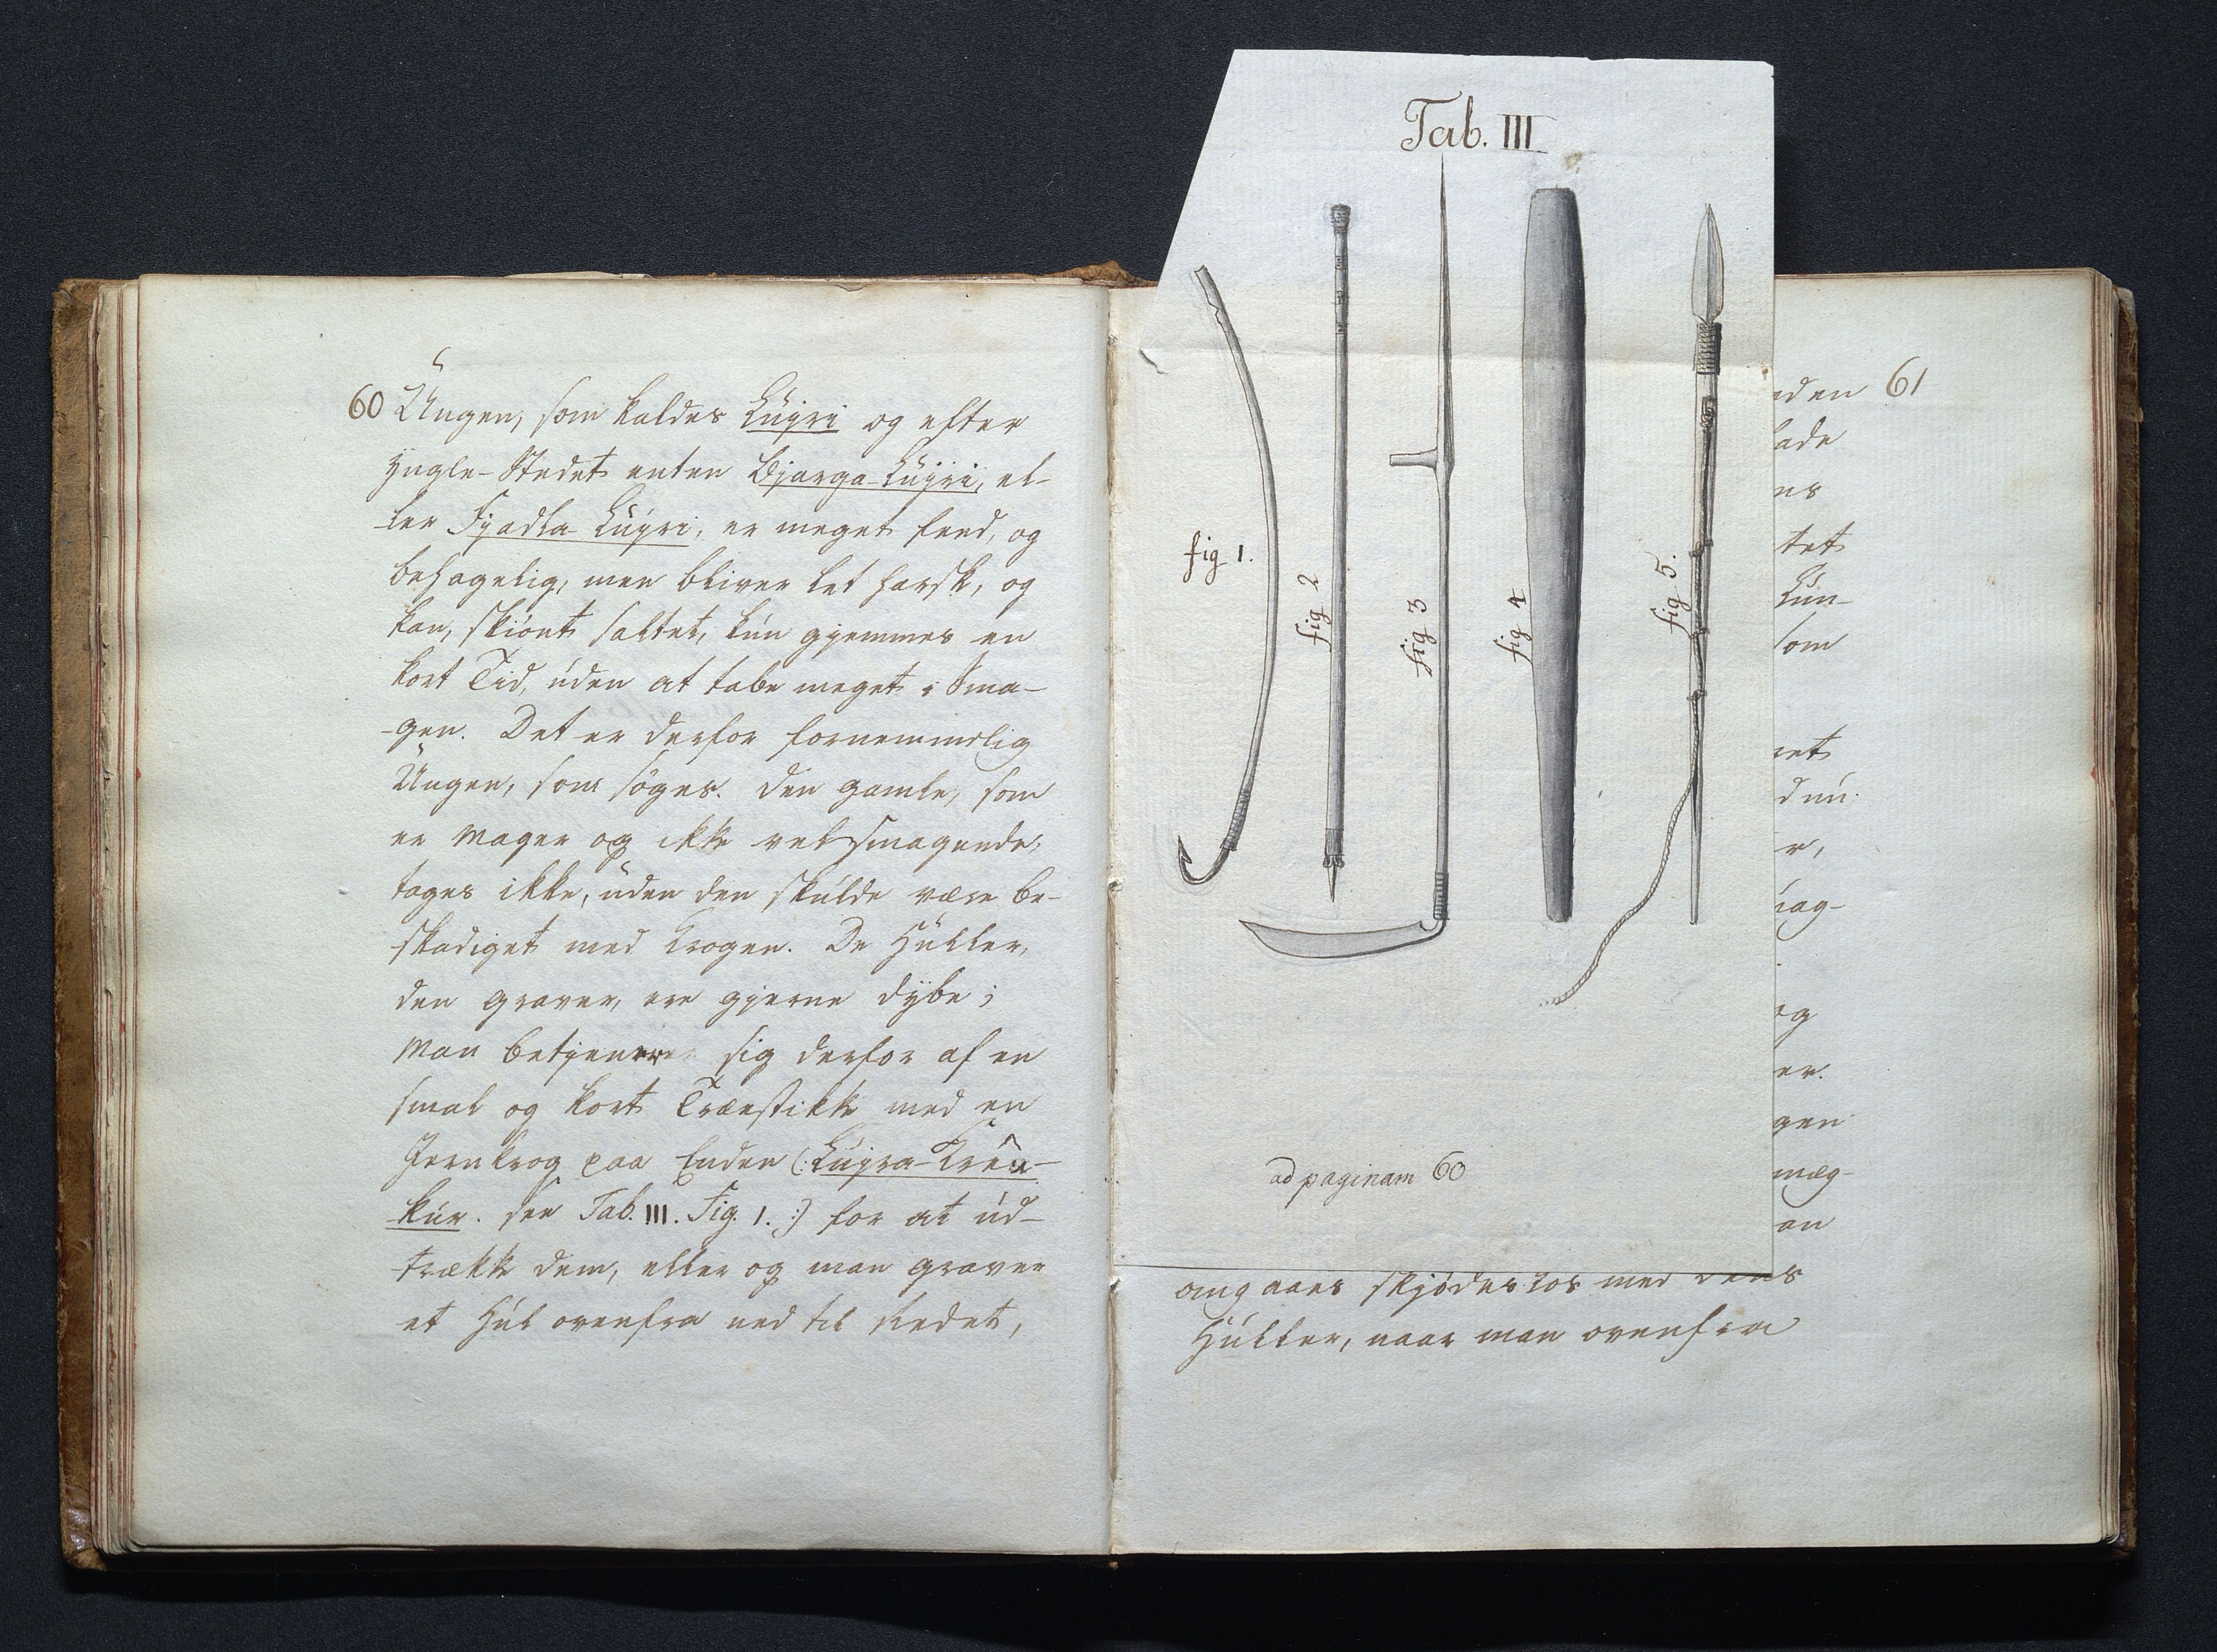 60 Ungen, som kaldes Lújri og efter
Yngle-Stedet enten Bjarga-Lújri, el-
ler Fjadla-Lújri, er meget feed, og
behagelig, men bliver let harsk, og
kan, skiönt saltet, kún gjemmes en
kort Tid, úden at tabe meget i Sma-
-gen. Det er derfor fornemmelig
Ungen, som söges. Den gamle, som
er mager og ikke velsmagende,
tages ikke, úden den skúlde være be-
skadiget med Krogen. De Húller,
den graver, ere gjerne dÿbe;
man betjener sig derfor af en
smal og kort Træestikke med en
Jernkrog paa Enden (:Lújra-Kréa-
kúr. see Tab. III. Fig. 1.:) for at úd-
trække dem, eller og man graver
et Húl ovenfra ned til Redet,
Tab. III
fig 1.
fig 2
fig 3
fig 4
fig 5.
ad paginam 60
61
omgaaes skjödeslös med dens
Húller, naar man ovenfra